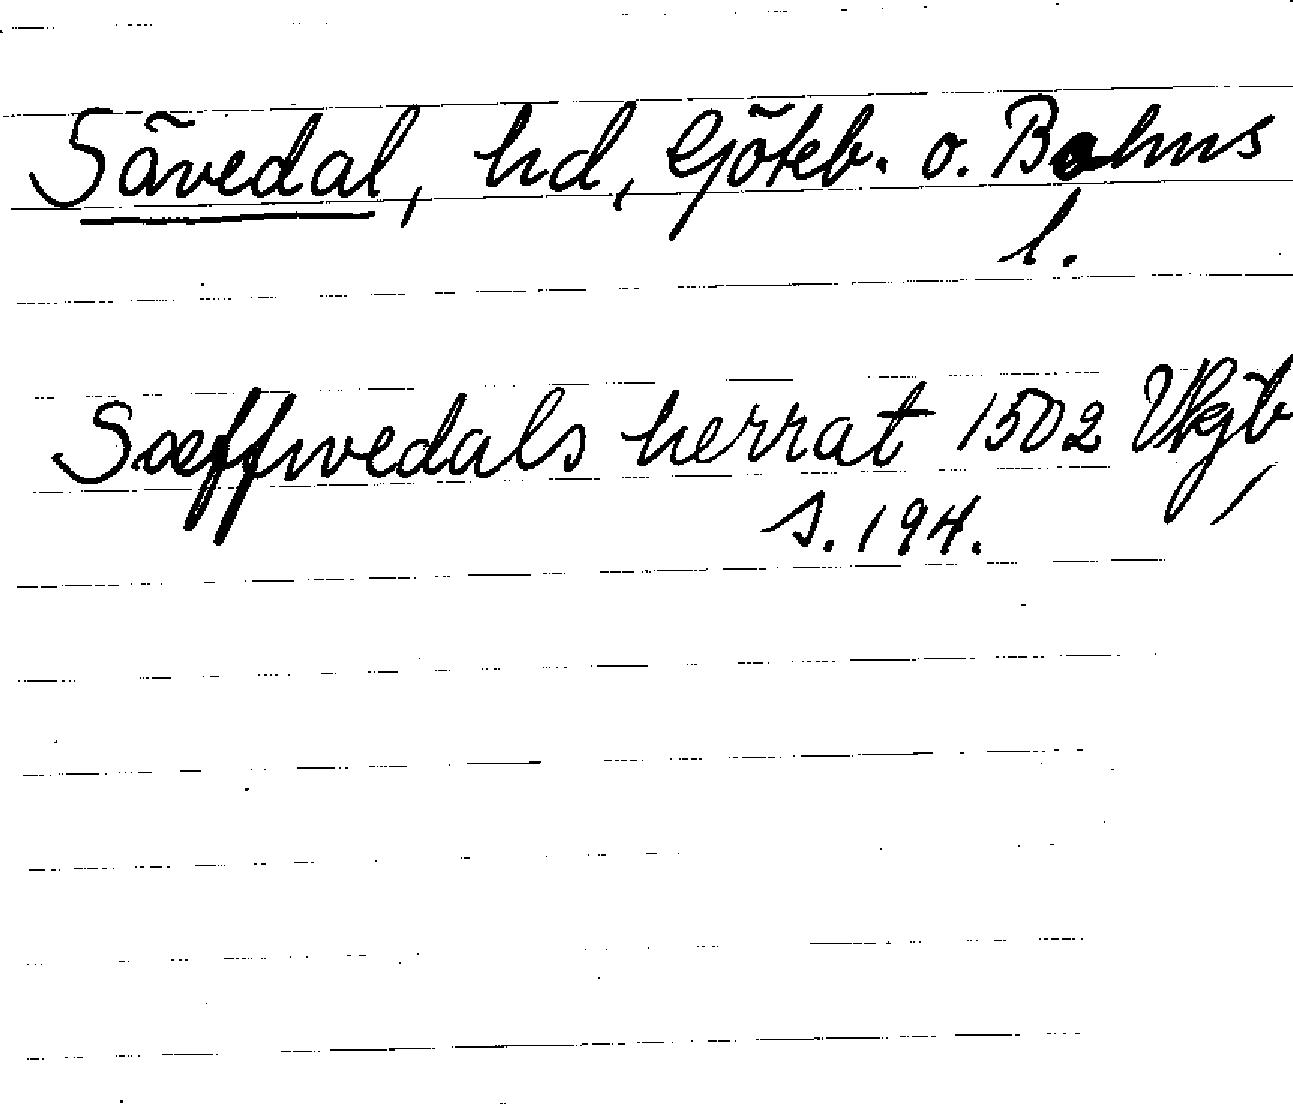 Sävedal, hd, Göteb. o. Bohus
l.
Sæffwedals herrat 1502 Vkjb,
s. 194.